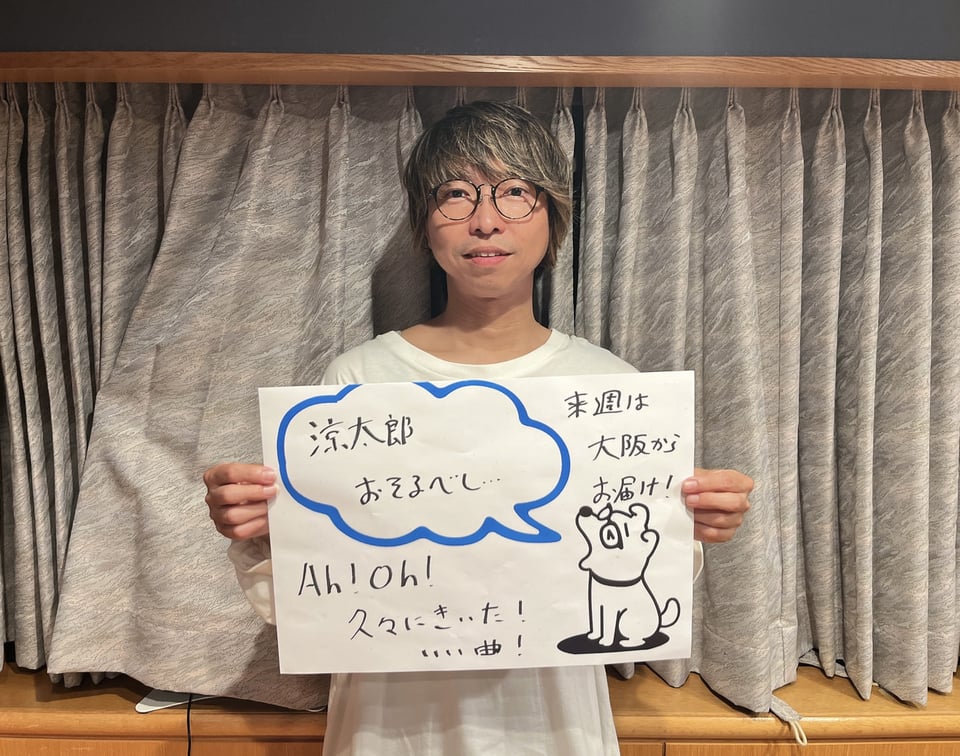 涼太郎
おそるべし…
Ah! Oh!
久々にきいた!
いい曲!
来週は
大阪から
お届け!